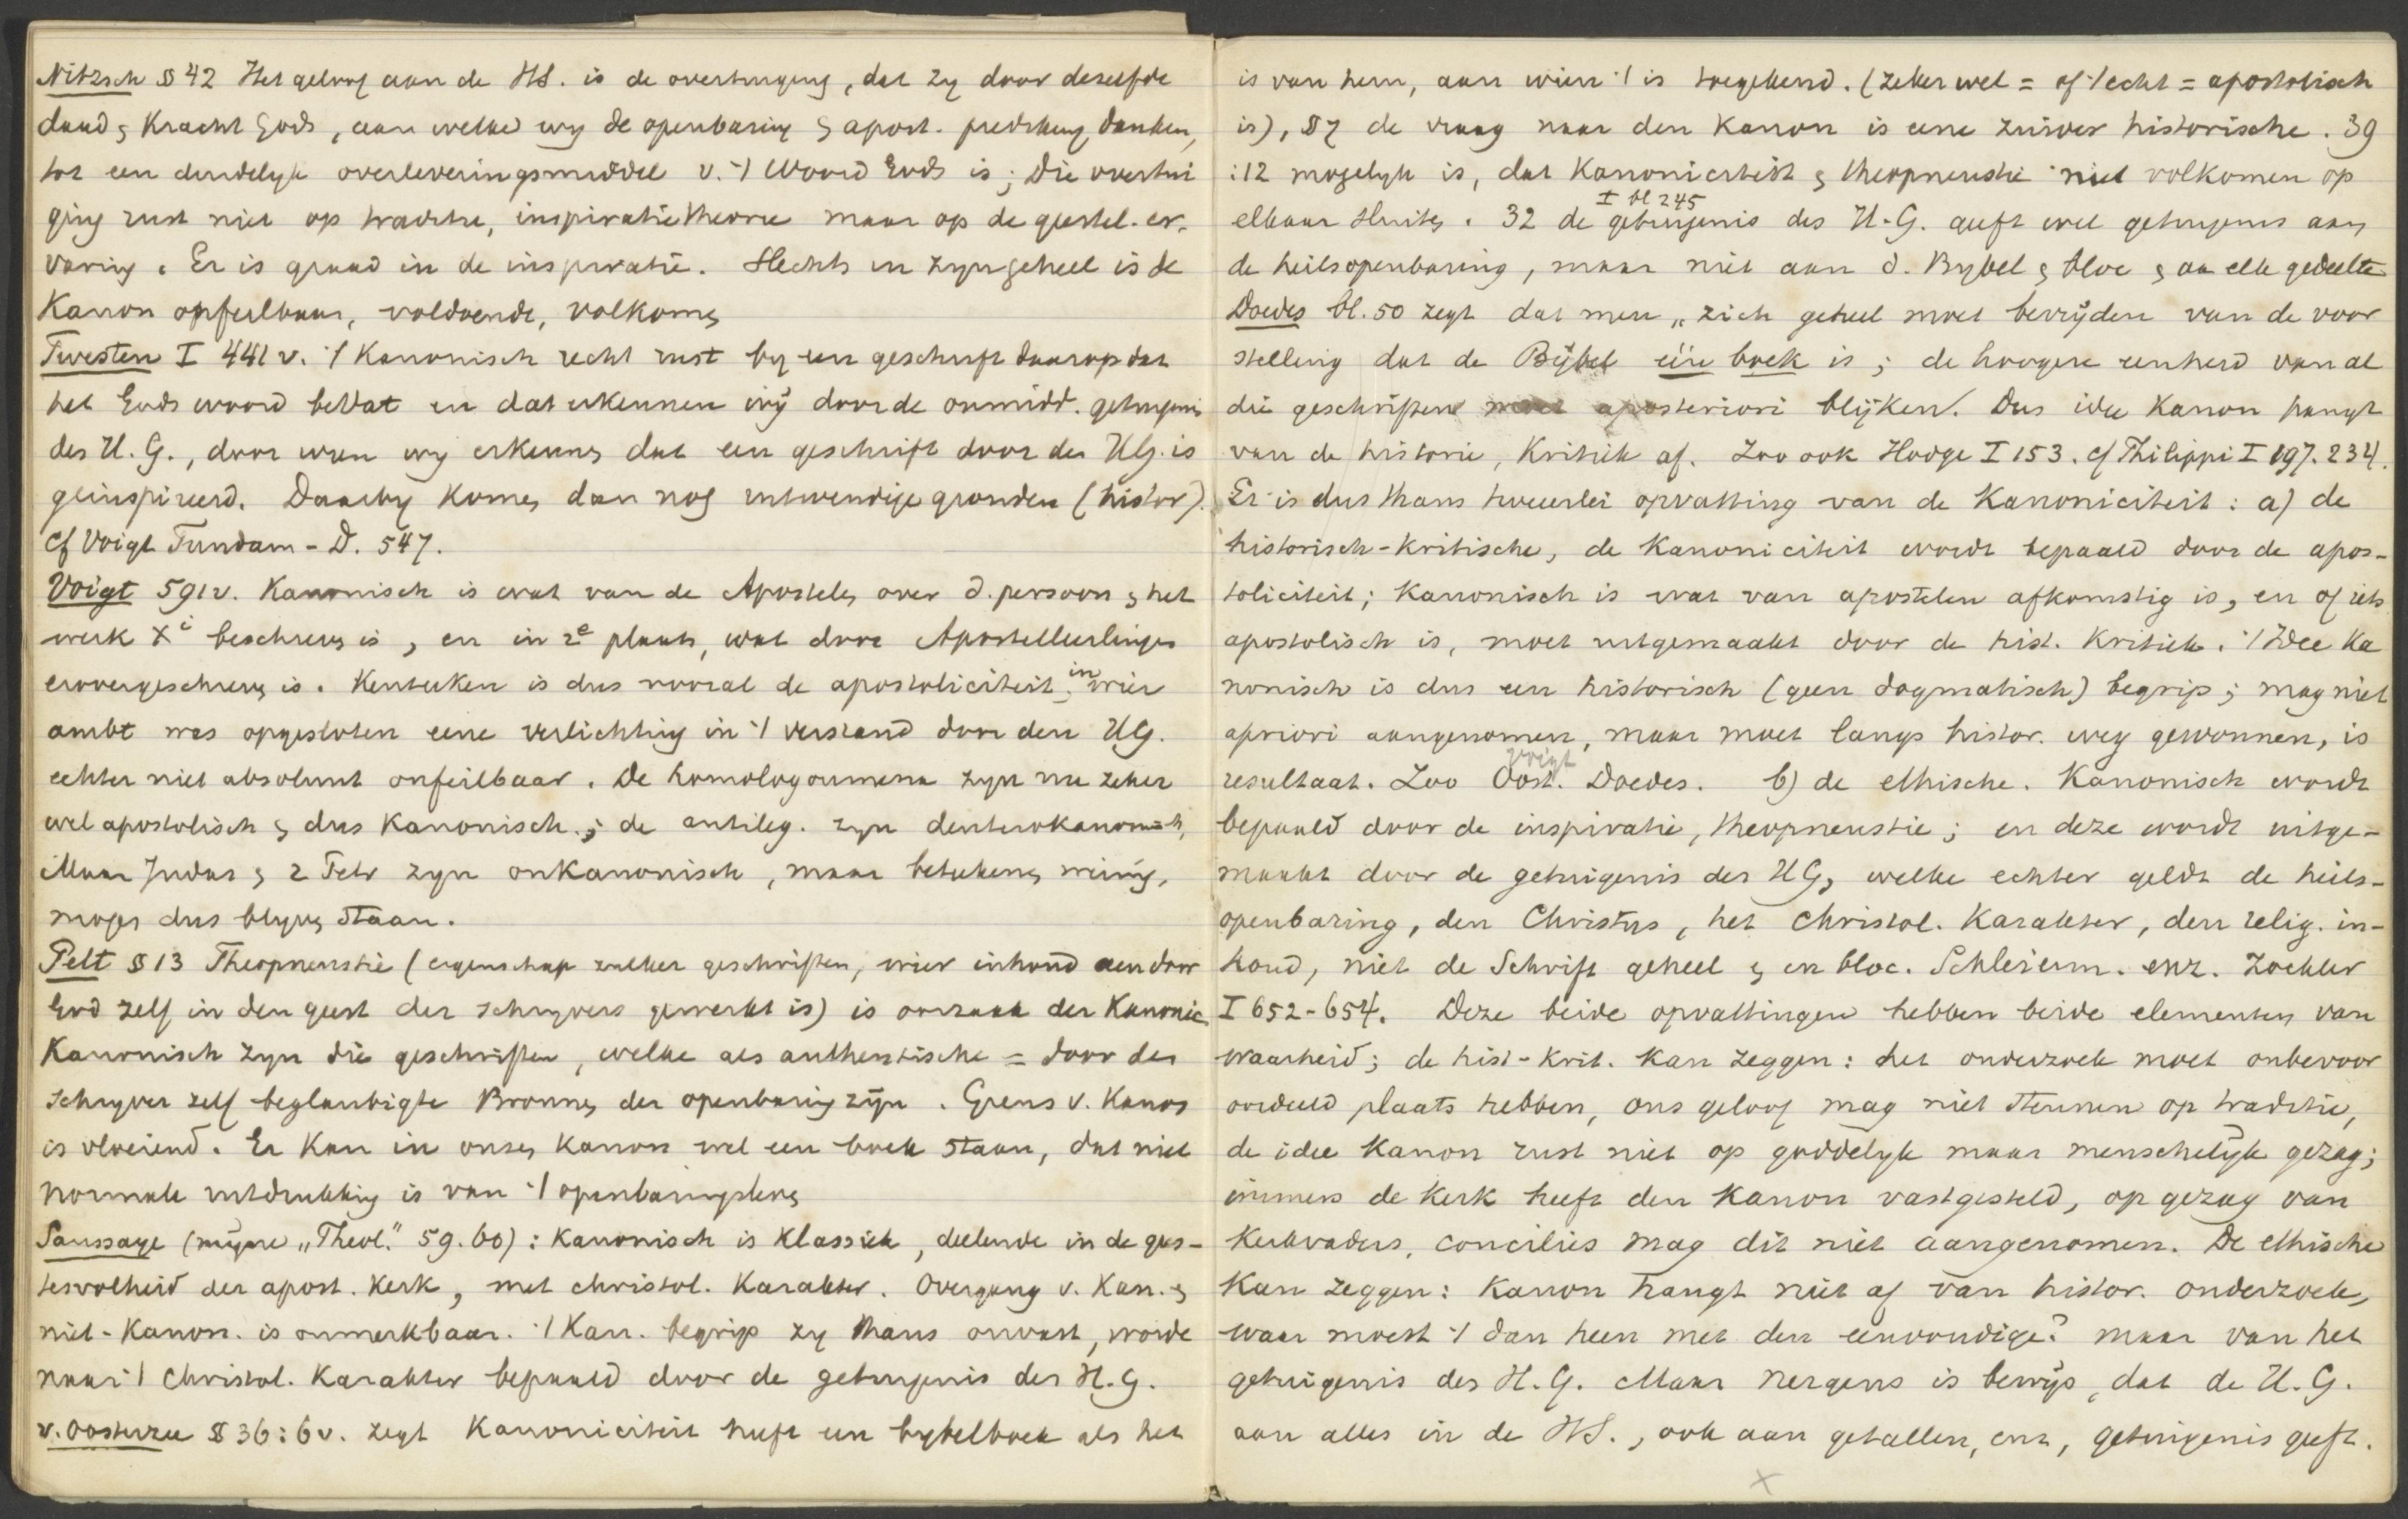 Nitzsch § 42 Het geloof aan de HS. is de overtuiging, dat zy door dezelfde
daad & Kracht Gods, aan welke wy de openbaring & apost. prediking danken,
tot een duidelyk overleveringsmiddel v. 't Woord Gods is; Die overtui
ging rust niet op traditie, inspiratietheorie maar op de geestel. er-
varing. Er is graad in de inspiratie. Slechts in zyn geheel is de
Kanon onfeilbaar, voldoende, volkomen
Twesten I 441 v. 't Kanonisch recht rust by een geschrift daarop dat
het Gods woord bevat en dat erkennen wij door de onmidd. getuigenis
des H. G., door wien wy erkennen dat een geschrift door den HG. is
geinspireerd. Daarby komen dan nog uitwendige gronden (histor).
cf Voigt Fundam-D. 547.
Voigt 591v. Kanonisch is wat van de Apostelen over d. persoon & het
werk Xi beschreven is, en in 2e plaats, wat door Apostelleerlingen
erover geschreven is. Kenteeken is dus vooral de apostoliciteit, in wier
ambt was opgesloten eene verlichting in 't verstand door den HG.
echter niet absoluut onfeilbaar. De homologoumena zyn nu zeker
wel apostolisch & dus Kanonisch; de antileg. zyn deuterokanonisch,
Maar Judas & 2 Petr zyn onkanonisch, maar beteekenen weinig,
mogen dus blyven staan.
Pelt § 13 Theopneustie (eigenschap zulker geschriften, wier inhoud door
God zelf in den geest der schryvers gewerkt is) is oorzaak der Kanonic
Kanonisch zyn die geschriften, welke als authentische = door den
schryver zelf beglaubigte Bronnen der openbaring zijn. Grens v. Kanon
is vloeiend. Er kan in onzen Kanon wel een boek staan, dat niet
normale uitdrukking is van 't openbaringsleven
Saussaye (mijne „Theol." 59.60): Kanonisch is Klassiek, deelende in de gees-
tesvolheid der apost. Kerk, met christol. Karakter. Overgang v. Kan. &
niet-Kanon. is onmerkbaar. 't Kan. begrip zy thans onvast, worde
naar 't Christol. Karakter bepaald door de getuigenis der H. G.
v. Oosterzee § 36:6v. zegt Kanoniciteit heeft een bybelboek als het
is van hem, aan wien 't is toegekend. (zeker wel = of 't echt = apostolisch
is), § 7 de vraag naar den Kanon is eene zuiver historische. 39
:12 mogelyk is, dat Kanoniciteit & theopneustie niet volkomen op
I bl 245
elkaar sluiten. 32 de getuigenis des H. G. geeft wel getuigenis aan
de heilsopenbaring, maar niet aan d. Bybel en bloc & aan elk gedeelte
Doedes bl. 50 zegt dat men „zich geheel moet bevrijden van de voor
stelling dat de Bijbel één boek is; de hoogere eenheid van al
die geschriften moet aposteriori blijken. Dus idee Kanon hangt
van de historie, Kritiek af. Zoo ook Hodge I 153. cf Philippi I 197. 234.
Er is dus thans tweeerlei opvatting van de Kanoniciteit: a) de
historisch-kritische, de Kanoniciteit wordt bepaald door de apos-
toliciteit; Kanonisch is wat van apostelen afkomstig is, en of iets
apostolisch is, moet uitgemaakt door de hist. Kritiek. 't Idee Ka
nonisch is dus een historisch (geen dogmatisch) begrip; mag niet
apriori aangenomen, maar moet langs histor. weg gewonnen, is
Voigt
resultaat. Zoo Oost. Doedes. b) de ethische. Kanonisch wordt
bepaald door de inspiratie, theopneustie; en deze wordt uitge-
maakt door de getuigenis des HG, welke echter geldt de heils-
openbaring, den Christus, het Christol. Karakter, den relig. in-
houd, niet de Schrift geheel & en bloc. Schleierm. enz. Zoekler
I 652-654. Deze beide opvattingen hebben beide elementen van
waarheid; de hist-krit. kan zeggen: het onderzoek moet onbevoor
oordeeld plaats hebben, ons geloof mag niet steunen op traditie,
de idee Kanon rust niet op goddelyk maar menschelyk gezag;
immers de Kerk heeft den Kanon vastgesteld, op gezag van
Kerkvaders, concilies mag dit niet aangenomen. De ethische
Kan zeggen: Kanon hangt niet af van histor. onderzoek,
waar moest 't dan heen met den eenvoudige? maar van het
getuigenis des H. G. Maar nergens is bewijs, dat de H. G.
aan alles in de HS., ook aan getallen, enz, getuigenis geeft.
x